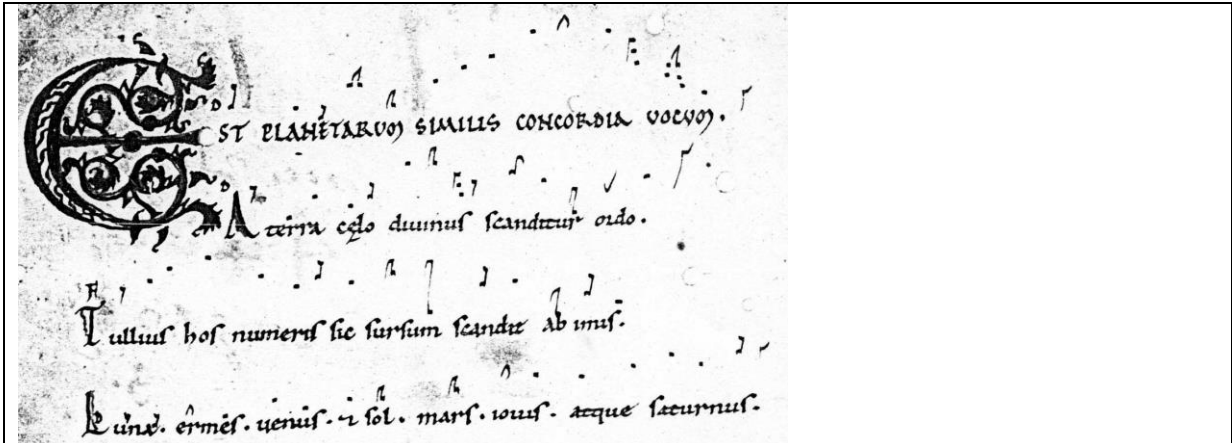 EST PLANETARUM SIMILIS CONCORDIA VOCUM.
A terra cęlo diuinus scanditur ordo.
Tullius hos sic sursum scandit ab imis.
Luna. ermes. uenus. & sol. mars. iouis. atque saturnus.